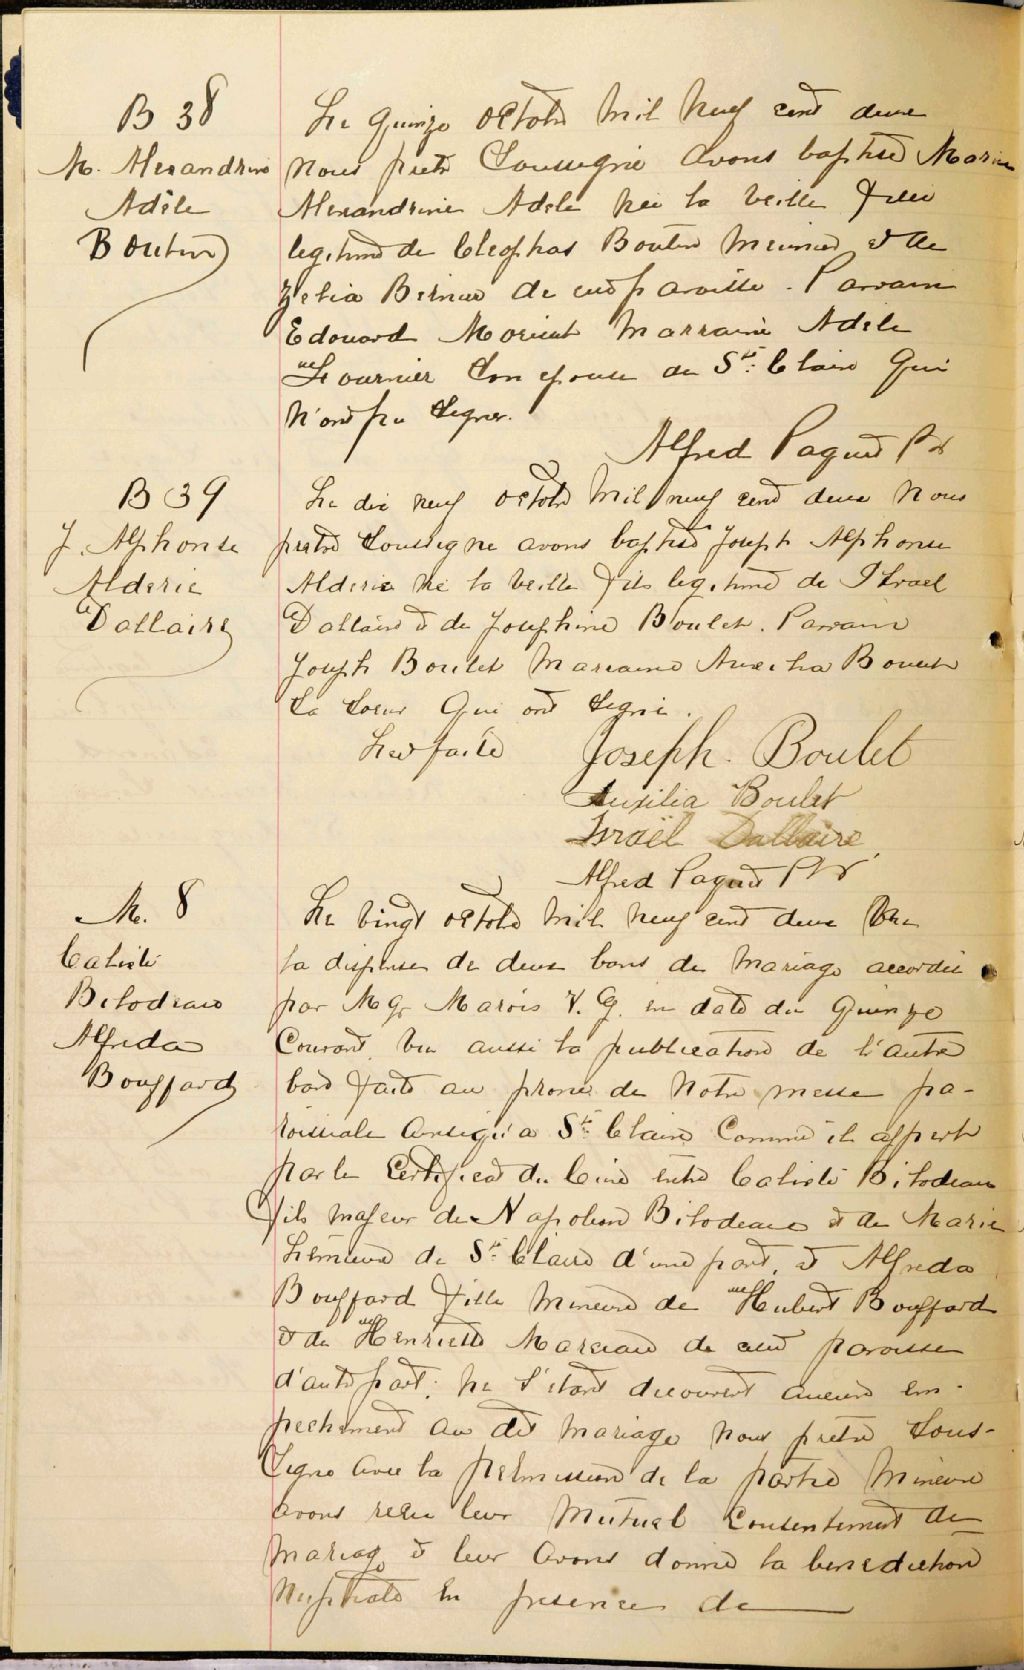 B 38
M. Alexandrine
Adèle
Boutin
Le quinze octobre mil neuf cent deux
nous pretre soussigné avons baptisé Marie
Alexandrine Adele née la veille fille
legitime de Cleophas Boutin meunier et de
Zelia Bernier de cette paroisse. Parrain
Edouard Morin Marraine Adèle
Fournier son epouse de Ste Claire qui
n'ont pu signer.
Alfred Paquet Ptr
B 39
J. Alphonse
Alderic
Dallaire
Le dix neuf octobre mil neuf cent deux nous
pretre soussigne avons baptisé Joseph Alphonse
Alderic né la veille fils legitime de Israel
Dallaire et de Josephine Boulet. Parrain
Joseph Boulet Marraine Auxilia Boulet
sa soeur qui ont signé.
Lect. faite
Joseph. Boulet
Auxilia Boulet
Israël Dallaire
Alfred Paquet Ptr
M. 8
Calixte
Bilodeau
Alfreda
Bouffard
Le vingt octobre mil neuf cent deux Vu
la dispense de deux bans de mariage accordée
par Mgr Marois V. G. en date du quinze
courant, vu aussi la publication de l'autre
ban faite au prone de notre messe pa-
roissiale ainsi qu'a Ste Claire comme il appert
par le certificat du Curé entre Calixte Bilodeau
fils majeur de Napoleon Bilodeau et de Marie
Lemieux de Ste Claire d'une part, et Alfreda
Bouffard fille mineure de Hubert Bouffard
et de Henriette Marceau de cette paroisse
d'autre part; ne s'etant decouvert aucun em-
pechement au dit mariage nous pretre sous-
signe avec la permission de la partie mineure
avons reçu leur mutuel consentement de
mariage et leur avons donné la benediction
nuptiale en presence de